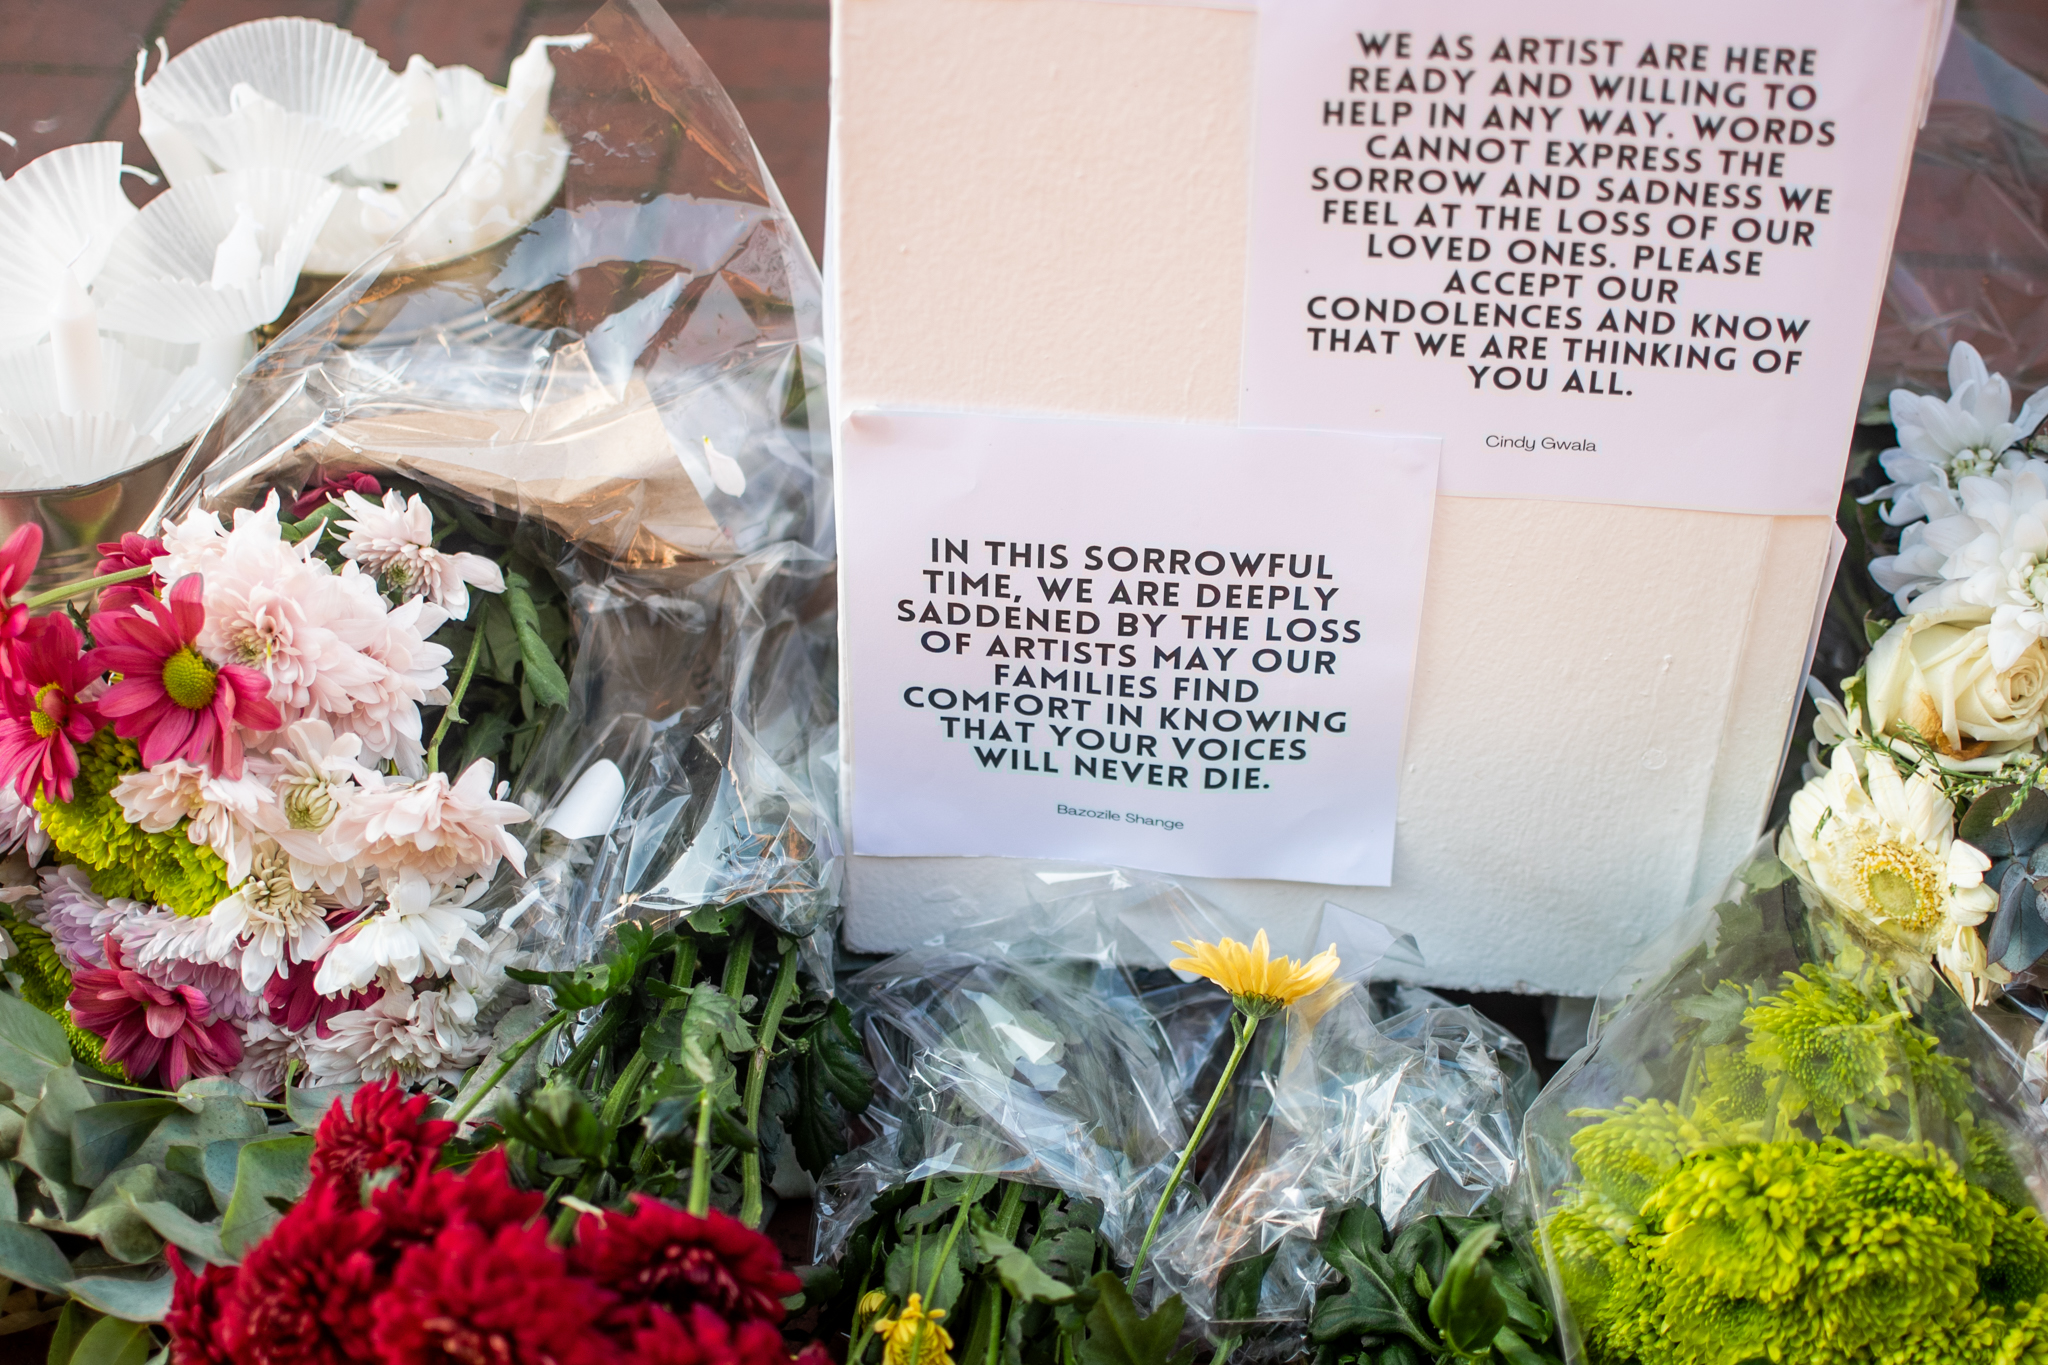 WE AS ARTIST ARE HERE
READY AND WILLING TO
HELP IN ANY WAY. WORDS
CANNOT EXPRESS THE
SORROW AND SADNESS WE
FEEL AT THE LOSS OF OUR
LOVED ONES. PLEASE
ACCEPT OUR
CONDOLENCES AND KNOW
THAT WE ARE THINKING OF
YOU ALL.
Cindy Gwala
IN THIS SORROWFUL
TIME, WE ARE DEEPLY
SADDENED BY THE LOSS
OF ARTISTS MAY OUR
FAMILIES FIND
COMFORT IN KNOWING
THAT YOUR VOICES
WILL NEVER DIE.
Bazozile Shange